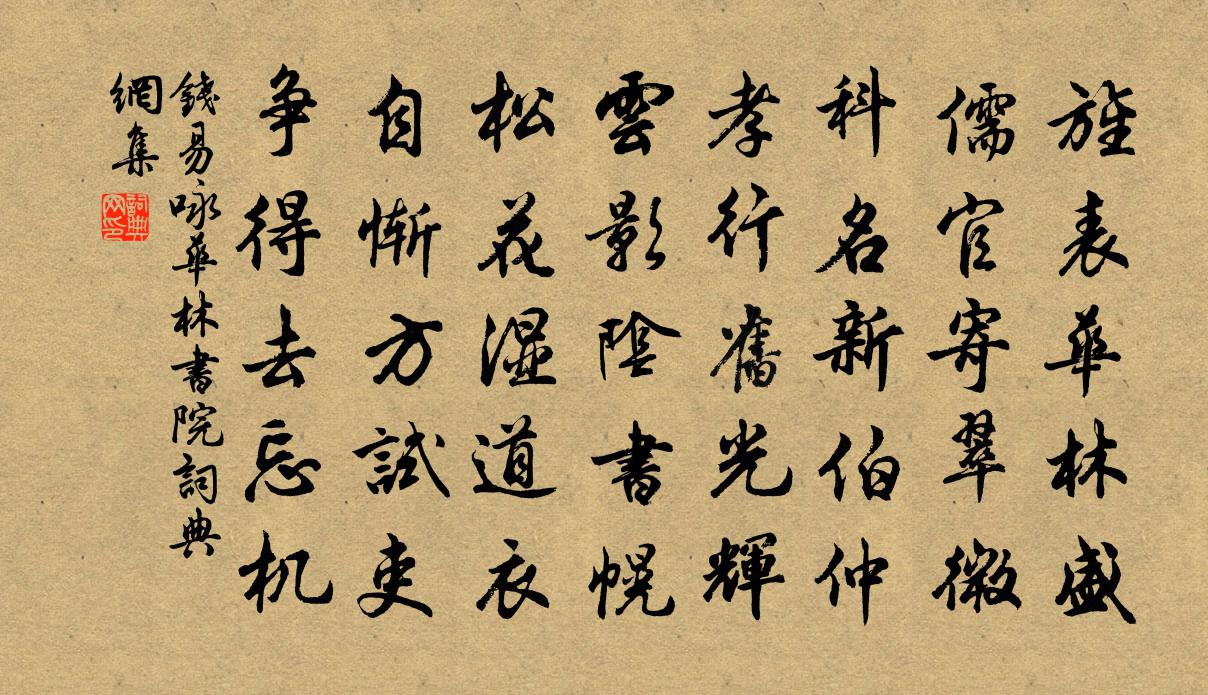 旌表華林盛
儒官寄翠微
科名新伯仲
孝行舊光輝
雲影陰書幌
松花湿道衣
自慚方試吏
争得去忘机
錢易咏華林書院詞典
網集
詞典
网印